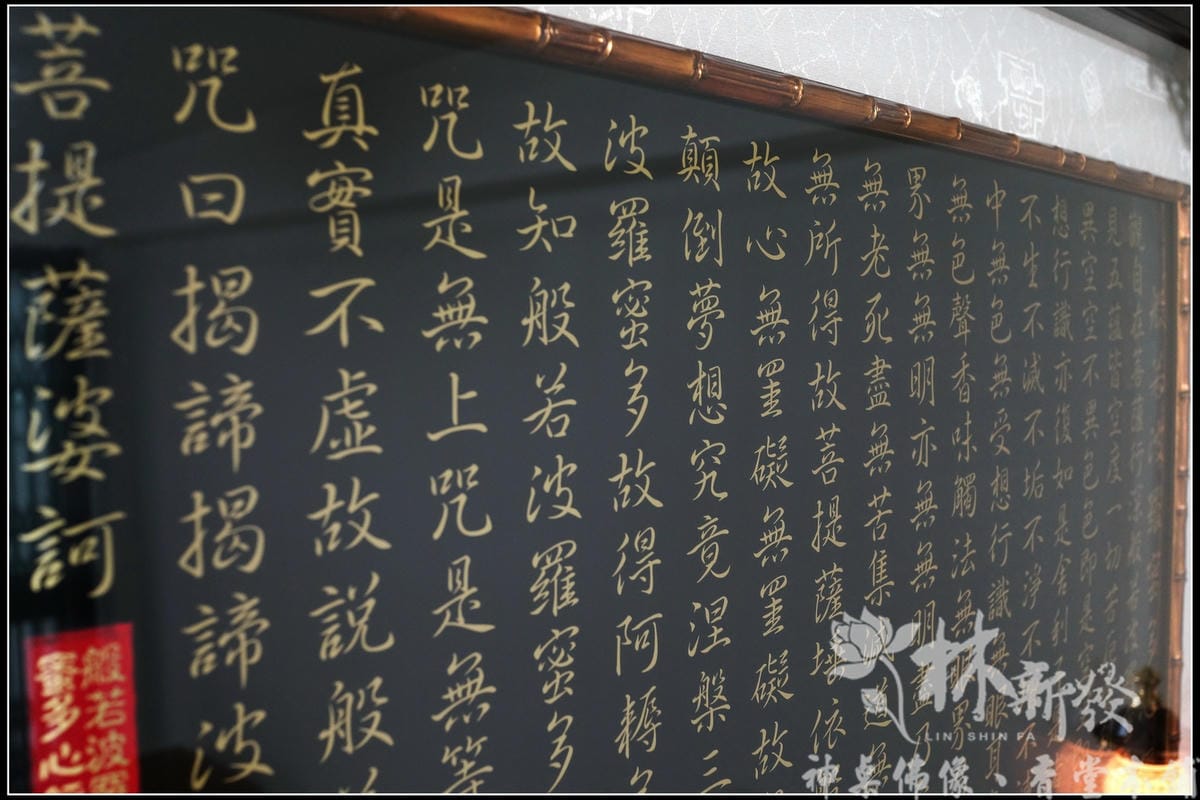 觀自在菩薩行深般若
見五蘊皆空度一切苦
異空空不異色色即是空
想行識亦復如是舍利
不生不滅不垢不淨不
中無色無受想行識無眼耳
無色聲香味觸法無眼界
界無無明亦無無明盡乃
無老死盡無苦集滅道無
無所得故菩提薩埵依
故心無罣礙無罣礙故
顛倒夢想究竟涅槃三
波羅蜜多故得阿耨
故知般若波羅蜜多
咒是無上咒是無等
真實不虛故說般
咒曰揭諦揭諦波
菩提薩婆訶
般若波羅
蜜多心
林新發
LIN SHIN FA
神桌佛像、香堂